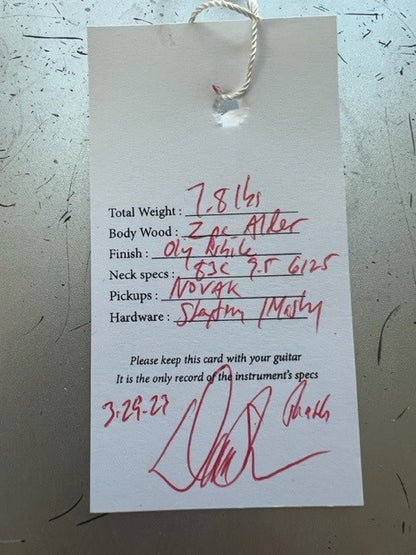 Total Weight : 7.8 lbs
Body Wood : 2 pc Alder
Finish : Oly White
Neck specs : .83C 9.5 6125
Pickups : NOVAK
Hardware : / Mastry
Please keep this card with your guitar
It is the only record of the instrument's specs
3-29-23